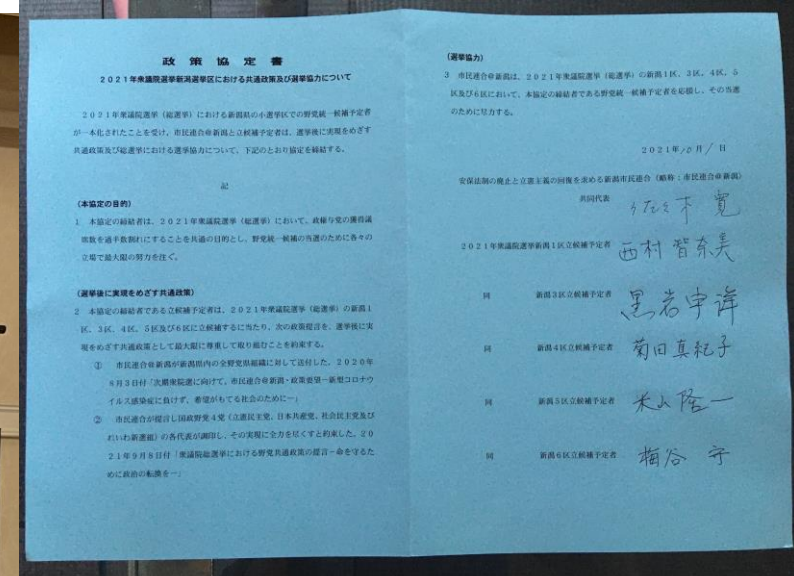 政策協定書
2021年衆議院選挙新潟選挙区における共通政策及び選挙協力について
2021年衆議院選挙(総選挙)における新潟県の小選挙区での野党統一候補予定者
が一本化されたことを受け、市民連合@新潟と立候補予定者は、選挙後に実現をめざす
共通政策及び総選挙における選挙協力について、下記のとおり協定を締結する。
記
(本協定の目的)
1 本協定の締結者は、2021年衆議院選挙(総選挙)において、政権与党の獲得議
席数を過半数割れにすることを共通の目的とし、野党統一候補の当選のために各々の
立場で最大限の努力を注ぐ。
(選挙後に実現をめざす共通政策)
2 本協定の締結者である立候補予定者は、2021年衆議院選挙(総選挙)の新潟1
区、3区、4区、5区及び6区に立候補するに当たり、次の政策提言を、選挙後に実
現をめざす共通政策として最大限に尊重して取り組むことを約束する。
① 市民連合@新潟が新潟県内の全野党県組織に対して送付した、2020年
8月3日付「次期衆院選に向けて、市民連合@新潟・政策要望―新型コロナウ
イルス感染症に負けず、希望がもてる社会のために―」
② 市民連合が提言し国政野党4党(立憲民主党、日本共産党、社会民主党及び
れいわ新選組)の各代表が調印し、その実現に全力を尽くすと約束した、20
21年9月8日付「衆議院総選挙における野党共通政策の提言―命を守るた
めに政治の転換を―」
(選挙協力)
3 市民連合@新潟は、2021年衆議院選挙(総選挙)の新潟1区、3区、4区、5
区及び6区において、本協定の締結者である野党統一候補予定者を応援し、その当選
のために尽力する。
2021年10月1日
安保法制の廃止と立憲主義の回復を求める新潟市民連合(略称:市民連合@新潟)
共同代表 佐々木寛
2021年衆議院選挙新潟1区立候補予定者 西村智奈美
同 新潟3区立候補予定者 黒岩宇洋
同 新潟4区立候補予定者 菊田真紀子
同 新潟5区立候補予定者 米山隆一
同 新潟6区立候補予定者 梅谷守